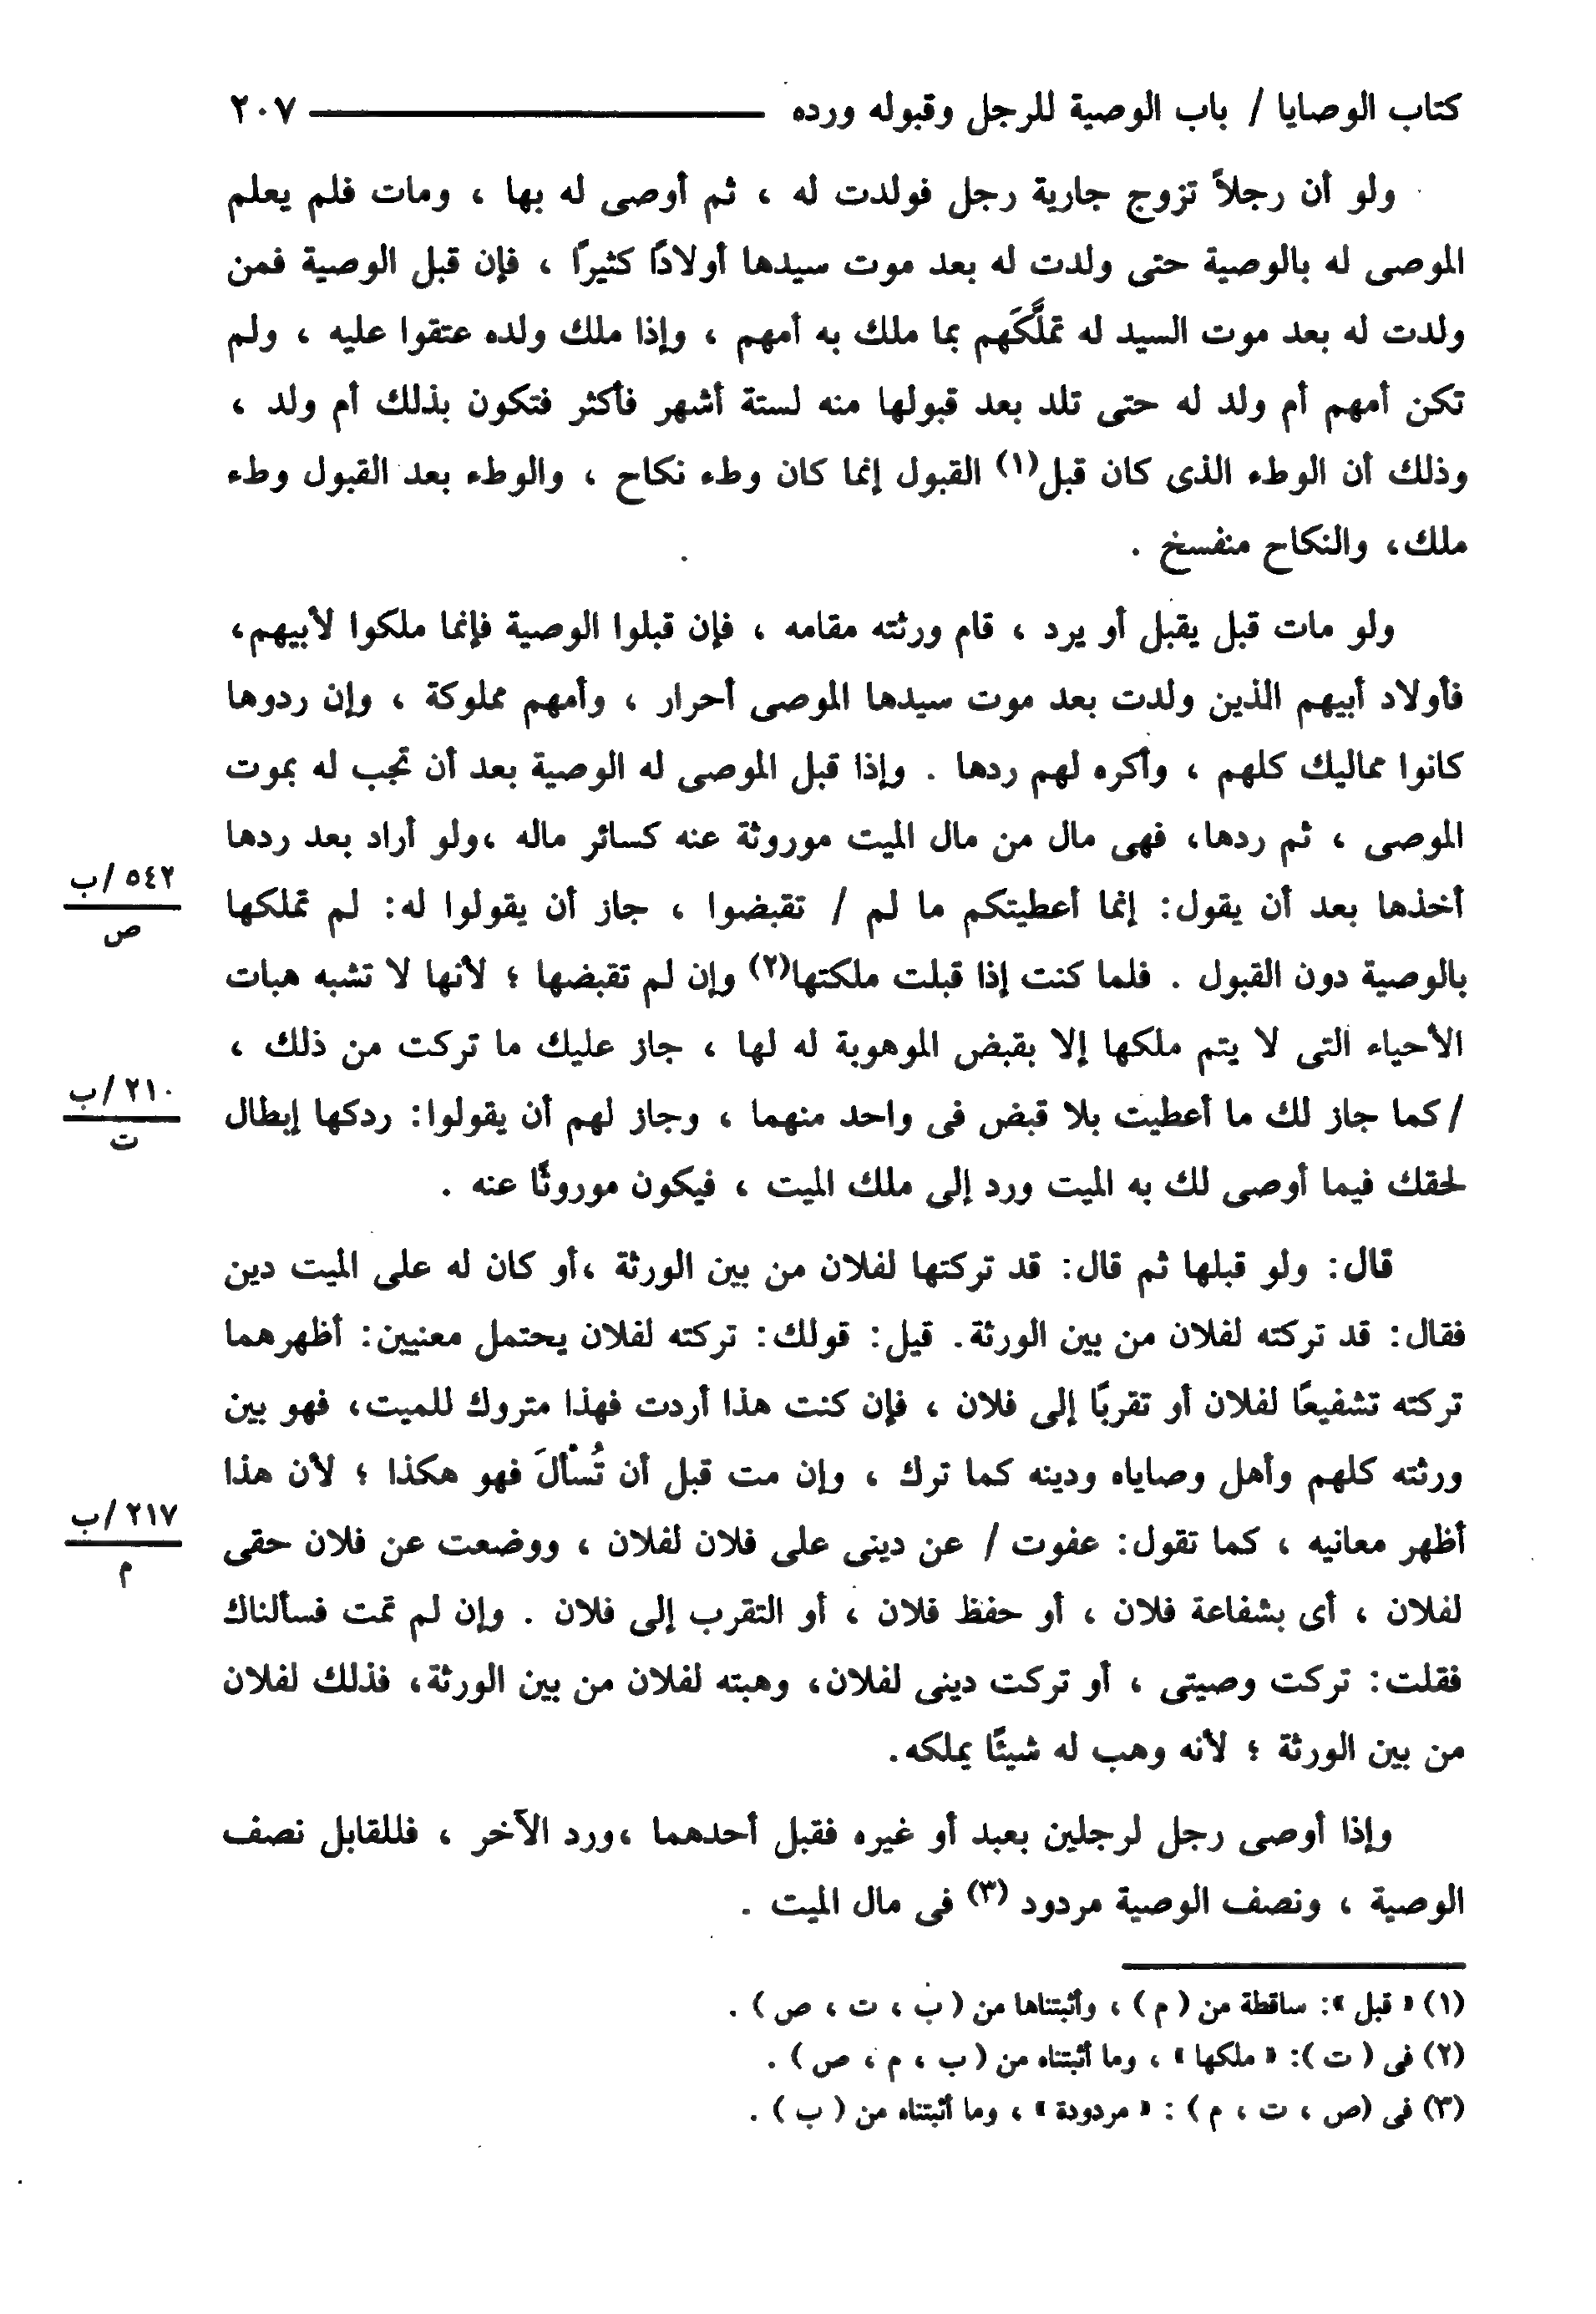 كتاب الوصايا / باب الوصية للرجل وقبوله ورده ٢٠٧
ولو أن رجلاً تزوج جارية رجل فولدت له ، ثم أوصى له بها ، ومات فلم يعلم
الموصى له بالوصية حتى ولدت له بعد موت سيدها أولادًا كثيرًا ، فإن قبل الوصية فمن
ولدت له بعد موت السيد له تملَّكَهم بما ملك به أمهم ، وإذا ملك ولده عتقوا عليه ، ولم
تكن أمهم أم ولد له حتى تلد بعد قبولها منه لستة أشهر فأكثر فتكون بذلك أم ولد ،
وذلك أن الوطء الذى كان قبل(١) القبول إنما كان وطء نكاح ، والوطء بعد القبول وطء
ملك، والنكاح منفسخ .
ولو مات قبل يقبل أو يرد ، قام ورثته مقامه ، فإن قبلوا الوصية فإنما ملكوا لأبيهم،
فأولاد أبيهم الذين ولدت بعد موت سيدها الموصى أحرار ، وأمهم مملوكة ، وإن ردوها
كانوا مماليك كلهم ، وأكره لهم ردها . وإذا قبل الموصى له الوصية بعد أن تجب له بموت
الموصى ، ثم ردها، فهى مال من مال الميت موروثة عنه كسائر ماله ،ولو أراد بعد ردها
٥٤٢ /ب
ص
أخذها بعد أن يقول: إنما أعطيتكم ما لم / تقبضوا ، جاز أن يقولوا له: لم تملكها
بالوصية دون القبول . فلما كنت إذا قبلت ملكتها(٢) وإن لم تقبضها ؛ لأنها لا تشبه هبات
الأحياء التى لا يتم ملكها إلا بقبض الموهوبة له لها ، جاز عليك ما تركت من ذلك ،
٢١٠ /ب
ت
/ كما جاز لك ما أعطيت بلا قبض فى واحد منهما ، وجاز لهم أن يقولوا: ردكها إبطال
لحقك فيما أوصى لك به الميت ورد إلى ملك الميت ، فيكون موروثًا عنه .
قال: ولو قبلها ثم قال: قد تركتها لفلان من بين الورثة ،أو كان له على الميت دين
فقال: قد تركته لفلان من بين الورثة. قيل: قولك: تركته لفلان يحتمل معنيين: أظهرهما
تركته تشفيعًا لفلان أو تقربًا إلى فلان ، فإن كنت هذا أردت فهذا متروك للميت، فهو بين
ورثته كلهم وأهل وصاياه ودينه كما ترك ، وإن مت قبل أن تُسْألَ فهو هكذا ؛ لأن هذا
٢١٧ /ب
م
أظهر معانيه ، كما تقول: عفوت / عن دينى على فلان لفلان ، ووضعت عن فلان حقى
لفلان ، أى بشفاعة فلان ، أو حفظ فلان ، أو التقرب إلى فلان . وإن لم تمت فسألناك
فقلت: تركت وصيتى ، أو تركت دينى لفلان، وهبته لفلان من بين الورثة، فذلك لفلان
من بين الورثة ؛ لأنه وهب له شيئًا يملكه.
وإذا أوصى رجل لرجلين بعبد أو غيره فقبل أحدهما ،ورد الآخر ، فللقابل نصف
الوصية ، ونصف الوصية مردود (٣) فى مال الميت .
(١) « قبل »: ساقطة من ( م ) ، وأثبتناها من ( ب ، ت ، ص ) .
(٢) فى ( ت ): « ملكها » ، وما أثبتناه من ( ب ، م ، ص ) .
(٣) فى (ص ، ت ، م ) : « مردودة » ، وما أثبتناه من ( ب ) .